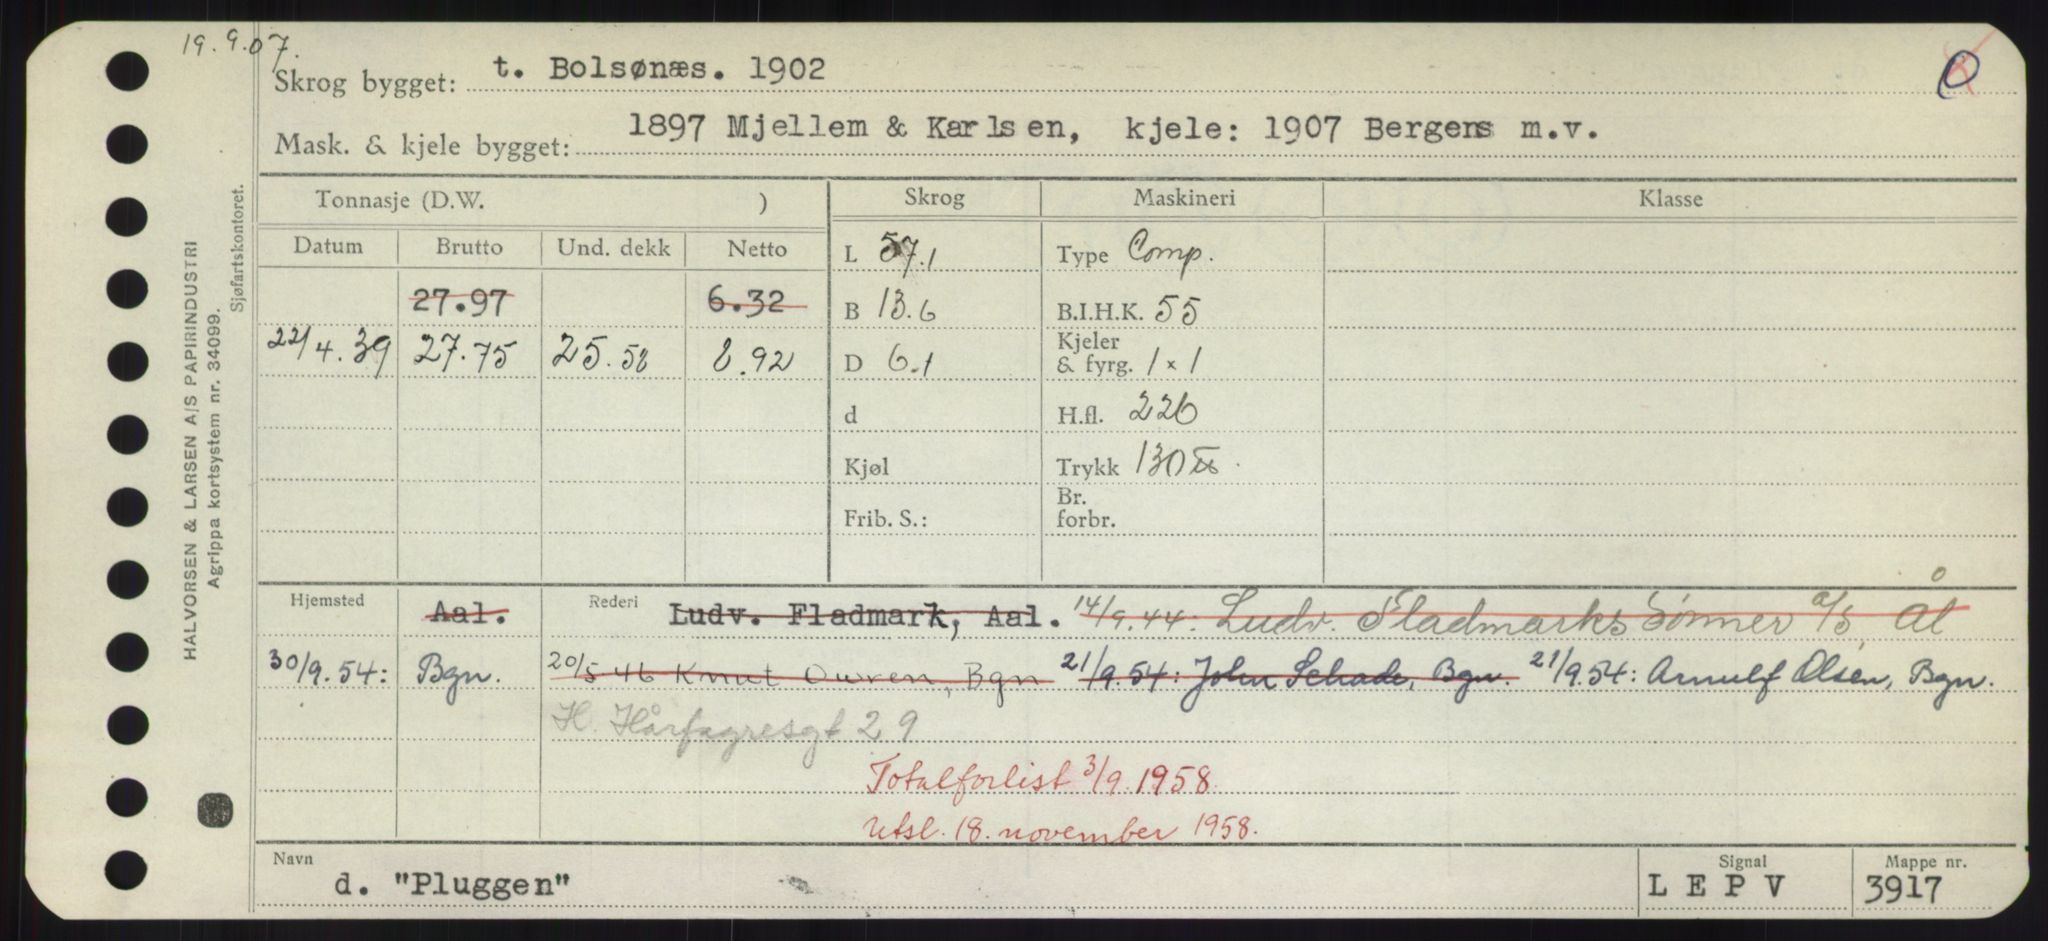 19.9.07.
Skrog bygget: t. Bolsønæs. 1902
0
Mask. & kjele bygget: 1897 Mjellem & Karlsen, kjele: 1907 Bergens m.v.
HALVORSEN & LARSEN A/S PAPIRINDUSTRI
Agrippa kortsystem nr. 34099.
Sjøfartskontoret.
Tonnasje (D.W. ) Skrog Maskineri Klasse
Datum Brutto Und. dekk Netto
L 57.1 Type Comp.
27.97 6.32 B 13.6 B.I.H.K. 55
22/4.39 27.75 25.58 8.92 D 6.1 Kjeler & fyrg. 1 x 1
d H.fl. 226
Kjøl Trykk 130
Frib. S.: Br. forbr.
Hjemsted Aal. Rederi Ludv. Fladmark, Aal. 14/9.44: Ludv. Fladmarks Sønner a/s, Ål
30/9.54: Bgn. 20/5 46 Knut Owren, Bgn 21/9.54: John Schade, Bgn. 21/9.54: Arnulf Olsen, Bgn.
H. Hårfagresgt 29
Totalforlist 3/9.1958.
Utsl. 18. november 1958.
Navn d. "Pluggen" Signal L E P V Mappe nr. 3917